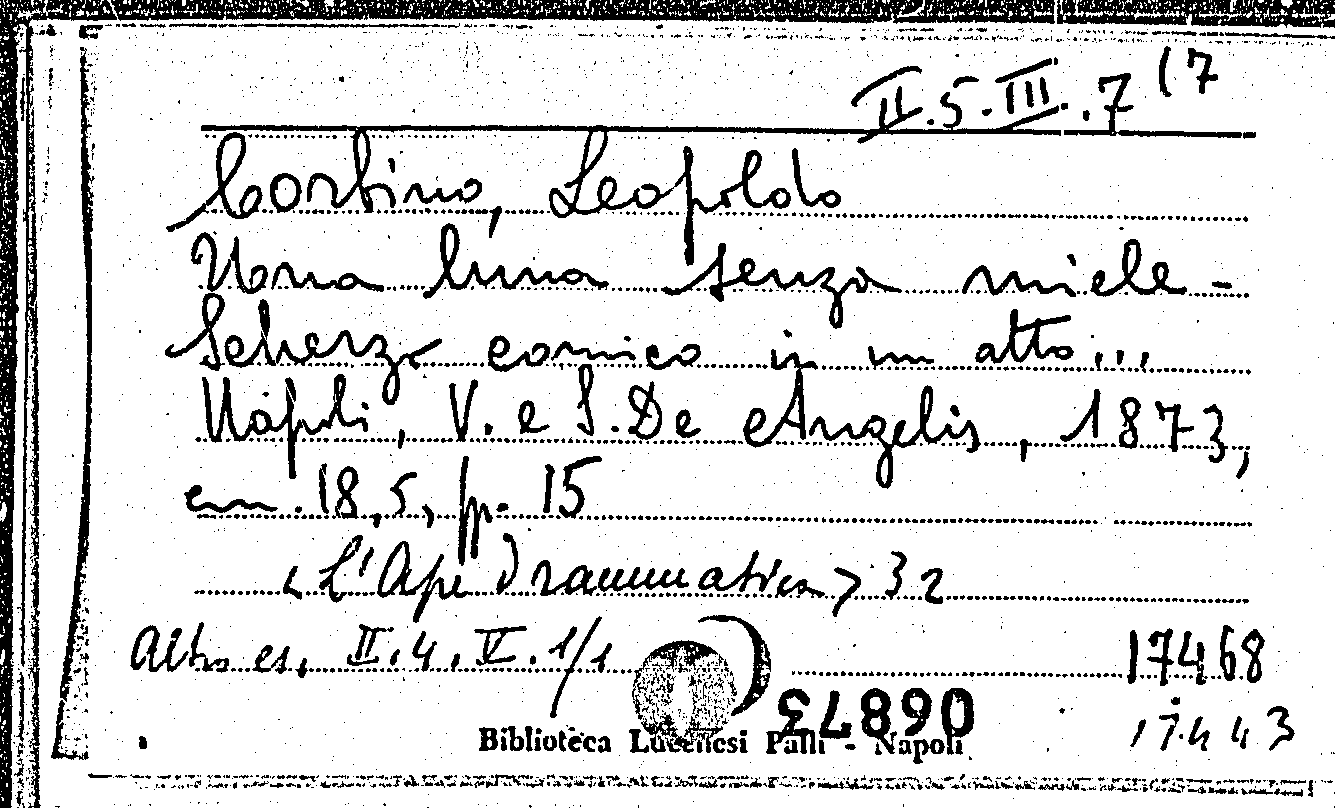 II.5.III.7(7
Corbino, Leopoldo
Una luna senza miele -
Scherzo comico in un atto...
Napoli, V. e S. De Angelis, 1873,
cm. 18,5, pp. 15
<L'Ape Drammatica> 32
Altro es. II.4.V.1/1
17468
068873
17443
Biblioteca Lucchesi Palli - Napoli